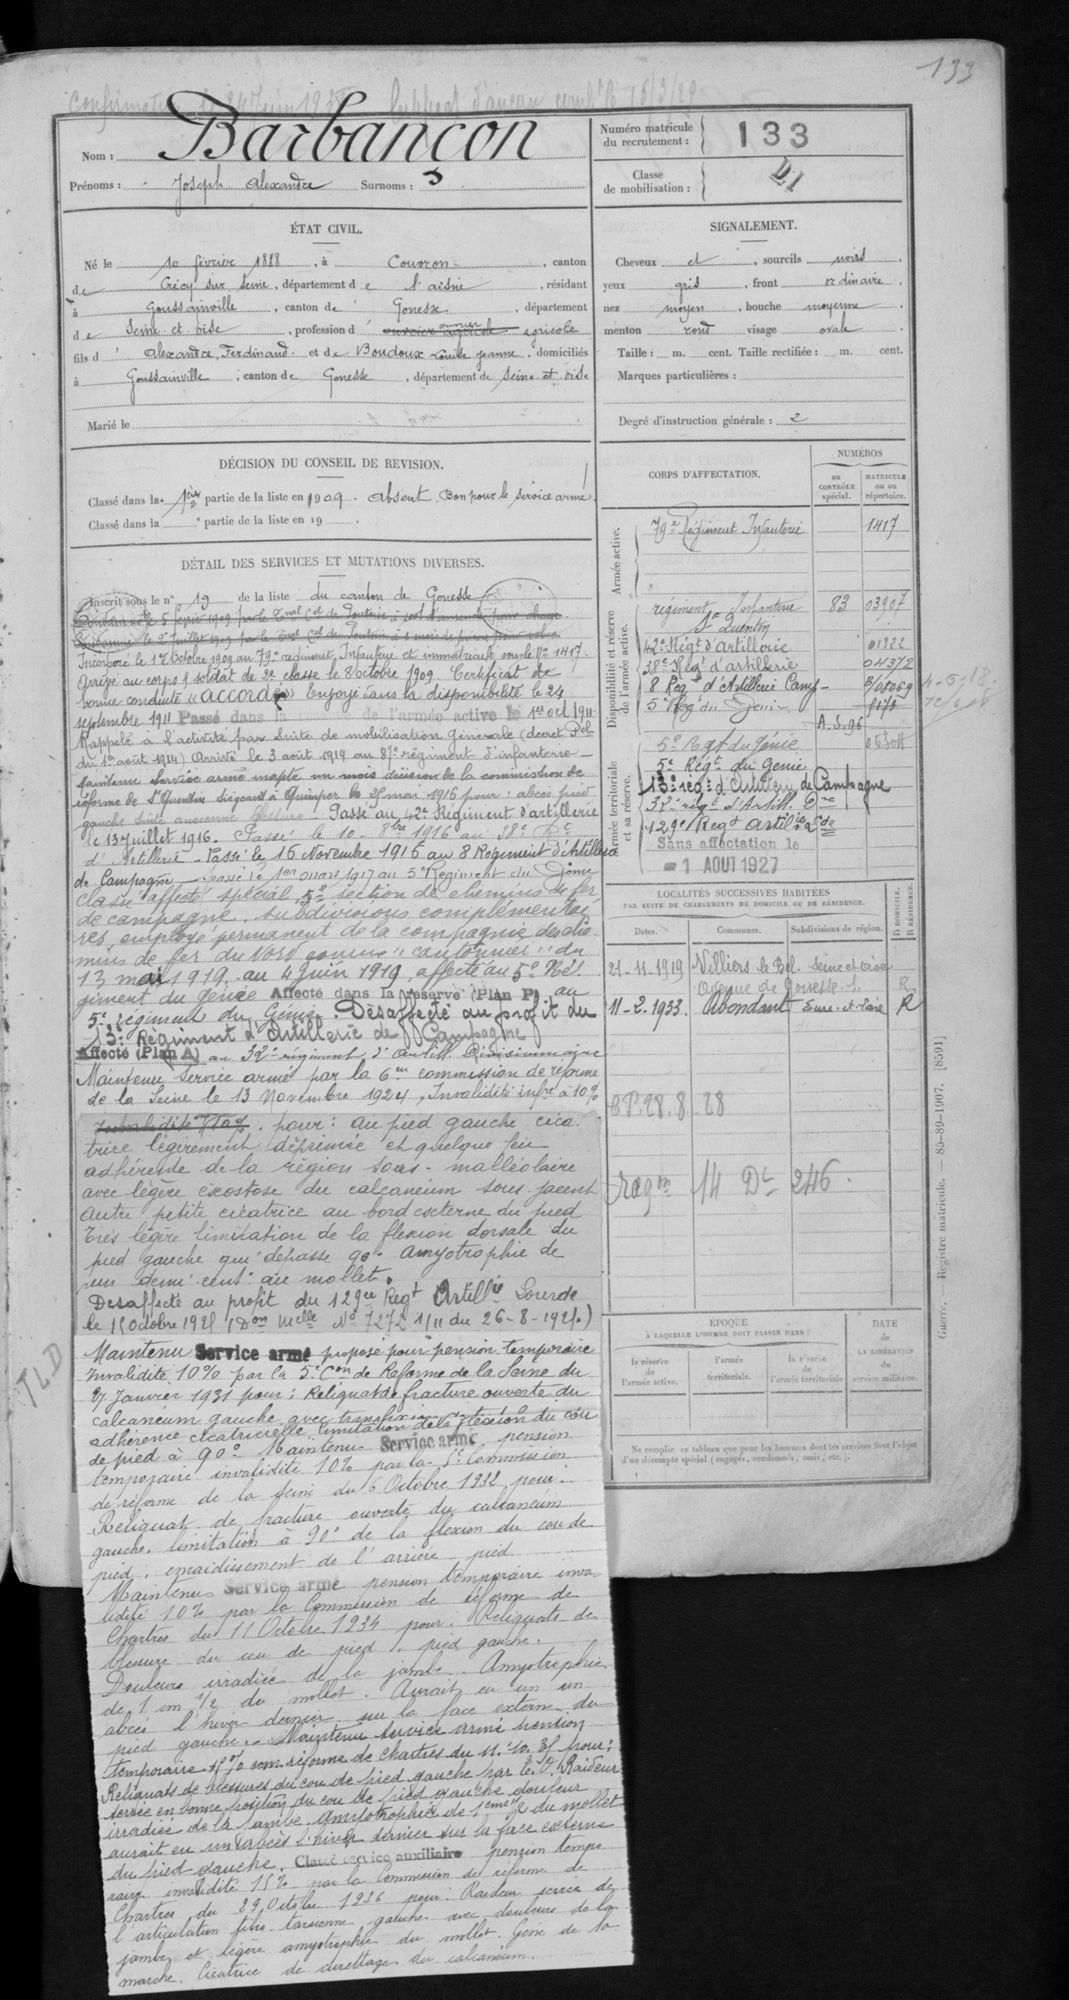 133
Confirmation le 24 Juin 193
Nom : Barbançon
Prénoms : Joseph Alexandre Surnoms :
Numéro matricule du recrutement : 133
Classe de mobilisation :
ÉTAT CIVIL.
Né le 10 février 1888, à Couvron, canton
de Crécy sur Seine, département de l'aisne, résidant
à Goussainville, canton de Gonesse, département
de Seine et oise, profession d' ouvrier agricole
fils d' Alexandre, Ferdinand et de Boudoux Louise Jeanne, domiciliés
à Goussainville, canton de Gonesse, département de Seine et oise
Marié le
SIGNALEMENT.
Cheveux et, sourcils noirs,
yeux gris, front ordinaire,
nez moyen, bouche moyenne
menton rond visage ovale
Taille : m. cent. Taille rectifiée : m. cent.
Marques particulières :
Degré d'instruction générale : 2
DÉCISION DU CONSEIL DE REVISION.
Classé dans la 1ère partie de la liste en 1909. Absent. Bon pour le service armé
Classé dans la e partie de la liste en 19
DÉTAIL DES SERVICES ET MUTATIONS DIVERSES.
Inscrit sous le n° 19 de la liste du canton de Gonesse
Incorporé le 1er Octobre 1909 au 79e régiment Infanterie et immatriculé sous le N° 1417.
Arrivé au corps & soldat de 2e classe le 8 octobre 1909. Certificat de
bonne conduite "accordé" Envoyé dans la disponibilité le 24
septembre 1911 Passé dans la de l'armée active le 1er oct 1911
Rappelé à l'activité par suite de mobilisation Générale (decret Pel
du 1er août 1914) Arrivé le 3 août 1914 au 87e régiment d'infanterie
Maintenu Service armé inapte un mois décision de la commission de
réforme de St Quentin siégeant à Quimper le 25 mar 1916 pour : abcès pied
gauche suite ancienne blessure. Passé au 42e Régiment d'artillerie
le 13 Juillet 1916. Passé le 10 8bre 1916 au 38e
d'Artillerie. Passé le 16 Novembre 1916 au 8 Régiment d'Artillerie
de Campagne. Passé le 1er mars 1917 au 5e Régiment du Génie
Classé affecté spécial 5e section de chemins de fer
de campagne, subdivisions complémentai
res, employé permanent de la compagnie des che
mins de fer du Nord comme "cantonnier" du
13 mai 1919 au 4 juin 1919, affecté au 5e Ré
giment du Génie Affecté dans la réserve (Plan P) au
5e régiment du Génie. Désaffecté au profit du
13e Régiment d'Artillerie de Campagne
Affecté (Plan A) au 32e régiment d'Artill. Divisionnaire
Maintenu Service armé par la 6me commission de réforme
de la Seine le 13 Novembre 1924, Invalidité infre à 10%
pour : au pied gauche cica
trice légèrement déprimée et quelque peu
adhérente de la région sous-malléolaire
avec légère exostose du calcanéum sous-jacent
Autre petite cicatrice au bord externe du pied
très légère limitation de la flexion dorsale du
pied gauche qui dépasse 90° amyotrophie de
un demi cent. au mollet.
Désaffecté au profit du 129e Regt Artillie Lourde
le 1 Octobre 1925 (Don Melle No 7272 1/11 du 26-8-1925.)
TLD
Maintenu Service armé proposé pour pension temporaire
invalidité 10% par la 5e Con de Réforme de la Seine du
27 Janvier 1931 pour : Reliquat de fracture ouverte du
calcanéum gauche avec
adhérence cicatricielle limitation de la flexion du cou
de pied à 90° Maintenu Service armé pension
temporaire invalidité 10% par la 5e Commission
de réforme de la Seine du 6 Octobre 1932 pour :
Reliquat de fracture ouverte du calcanéum
gauche, limitation à 90° de la flexion du cou de
pied, enraidissement de l'arrière pied.
Maintenu Service armé pension temporaire inva
lidité 10% par la Commission de réforme de
Chartres du 11 Octobre 1934 pour : Reliquats de
blessure du cou de pied, pied gauche.
Douleurs irradiée de la jambe. Amyotrophie
de 1 cm 1/2 du mollet. Aurait eu un
abcès l'hiver dernier sur la face externe du
pied gauche. Maintenu service armé pension
temporaire % com. réforme de Chartres du 11.10.35 pour :
Reliquats de blessures du cou de pied gauche Raideur
serrée en bonne position du cou de pied gauche douleur
irradiée de la jambe. Amyotrophie de 1 cm 1/2 du mollet
aurait eu un abcès l'hiver dernier sur la face externe
du pied gauche. Classé service auxiliaire pension tempo
raire invalidité 15% par la Commission de réforme de
Chartres du 29 Octobre 1936 pour Raideur serrée de
l'articulation tibio tarsienne gauche avec douleurs de la
jambe et légère amyotrophie du mollet. Gêne de la
marche. Cicatrice de curettage du calcanéum.
CORPS D'AFFECTATION.
NUMÉROS
au CONTRÔLE spécial.
MATRICULE ou au répertoire.
Armée active.
79e Régiment Infanterie 1417
Disponibilité et réserve de l'armée active.
régiment Infanterie 83 03907
St Quentin
42e Régt d'artillerie 01322
38e Régt d'artillerie 04372
8 Reg t d'Artillerie Camp
5e Reg du Génie
A.S.96
Armée territoriale et sa réserve.
5e Regt du Génie
5e Régt du Génie
13e régt d'Artillerie de Campagne
32e régt d'Artill. Dre
129e Regt Artillie Lde
Sans affectation le
1 AOUT 1927
LOCALITÉS SUCCESSIVES HABITÉES
PAR SUITE DE CHANGEMENTS DE DOMICILE OU DE RÉSIDENCE.
Dates. Communes. Subdivisions de région. D DOMICILE. R RÉSIDENCE.
21-11-1919 Villiers le Bel Seine et Oise
Avenue de Gonesse R
11-2-1933 Abondant Eure-et-Loir R
28.8.28
246
ÉPOQUE
À LAQUELLE L'HOMME DOIT PASSER DANS :
la réserve de l'armée active.
l'armée territoriale.
la réserve de l'armée territoriale
DATE de LA LIBÉRATION du service militaire.
Ne remplir ce tableau que pour les hommes dont les services font l'objet
d'un décompte spécial (engagés, condamnés, omis, etc.).
Guerre. — Registre matricule. — 85-89-1907. [8591]